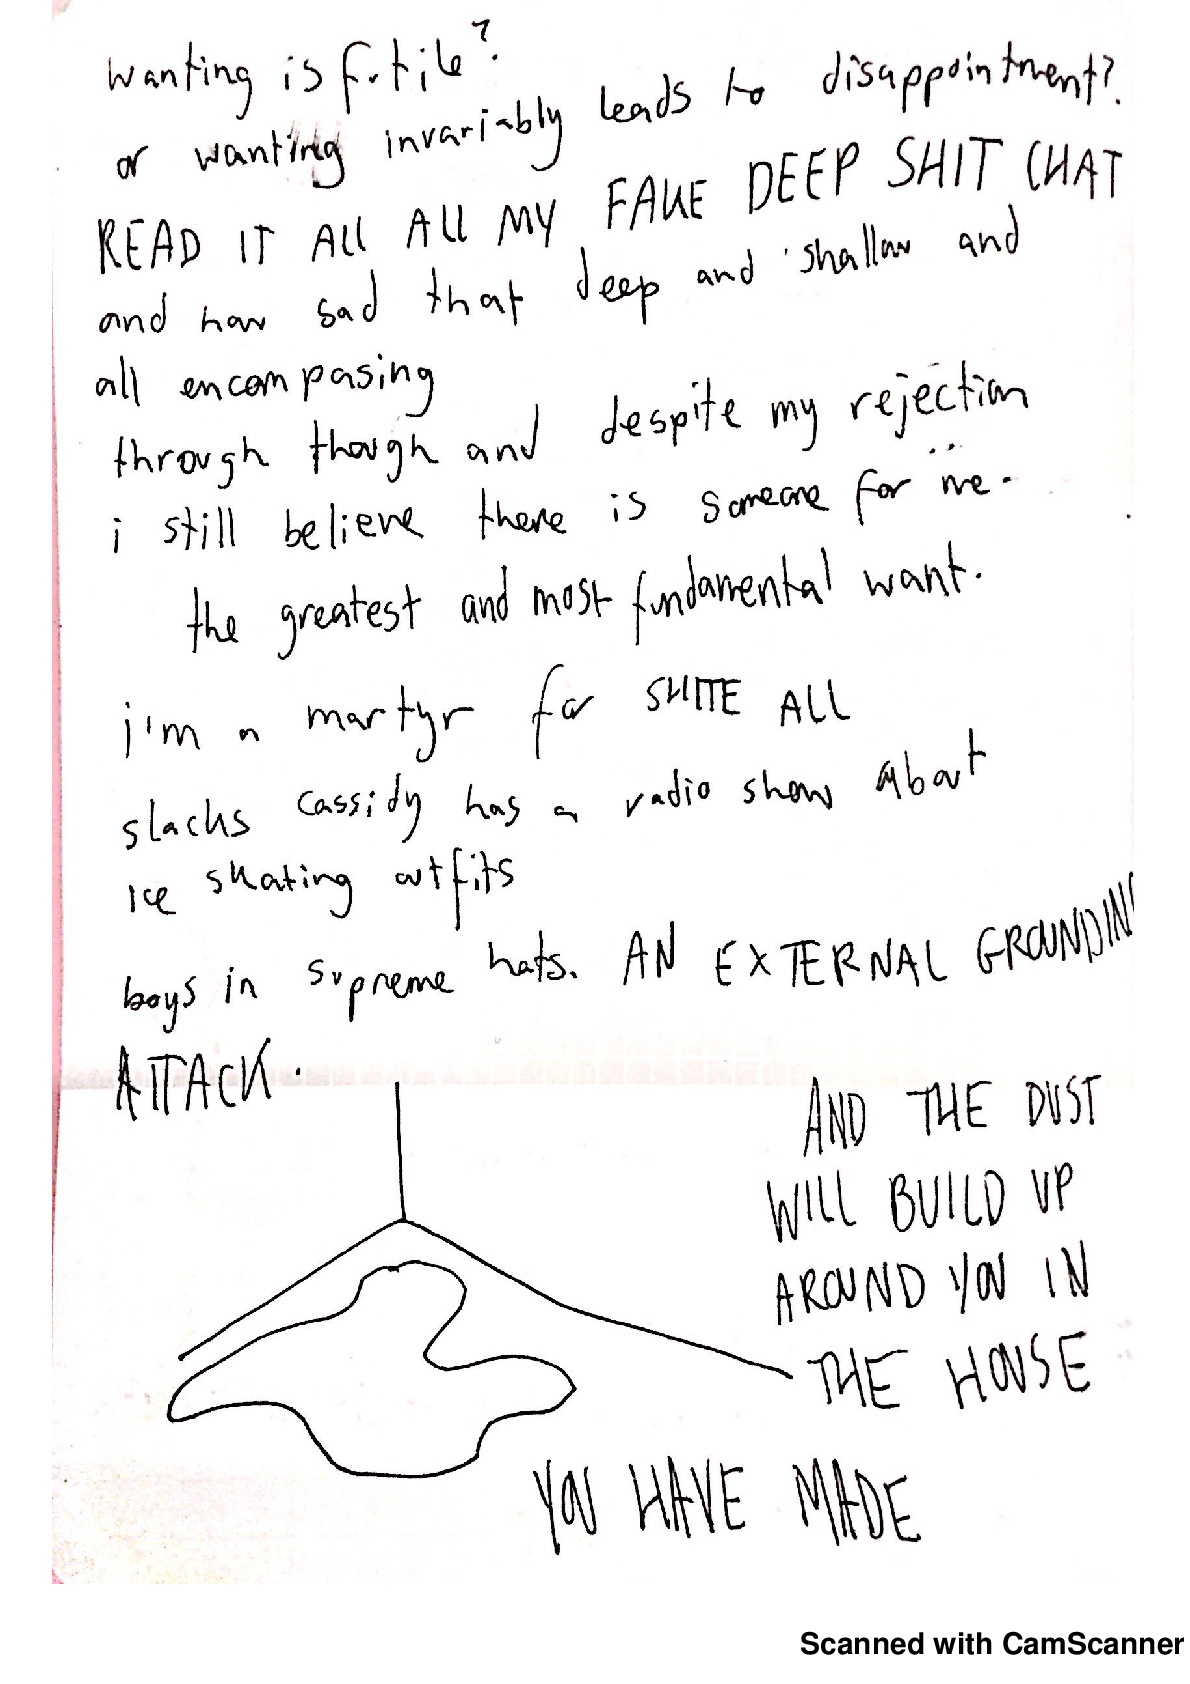 wanting is futile?
or wanting invariably leads to disappointment?
READ IT All All MY FAKE DEEP SHIT CHAT
and how sad that deep and shallow and
all encompasing
through though and despite my rejection
i still believe there is someone for me.
the greatest and most fundamental want.
i'm a martyr for SHITE ALL
slacks cassidy has a radio show about
ice skating outfits
boys in supreme hats. AN EXTERNAL GROUNDING
ATTACK.
AND THE DUST
WILL BUILD UP
AROUND YOU IN
THE HOUSE
YOU HAVE MADE
Scanned with CamScanner